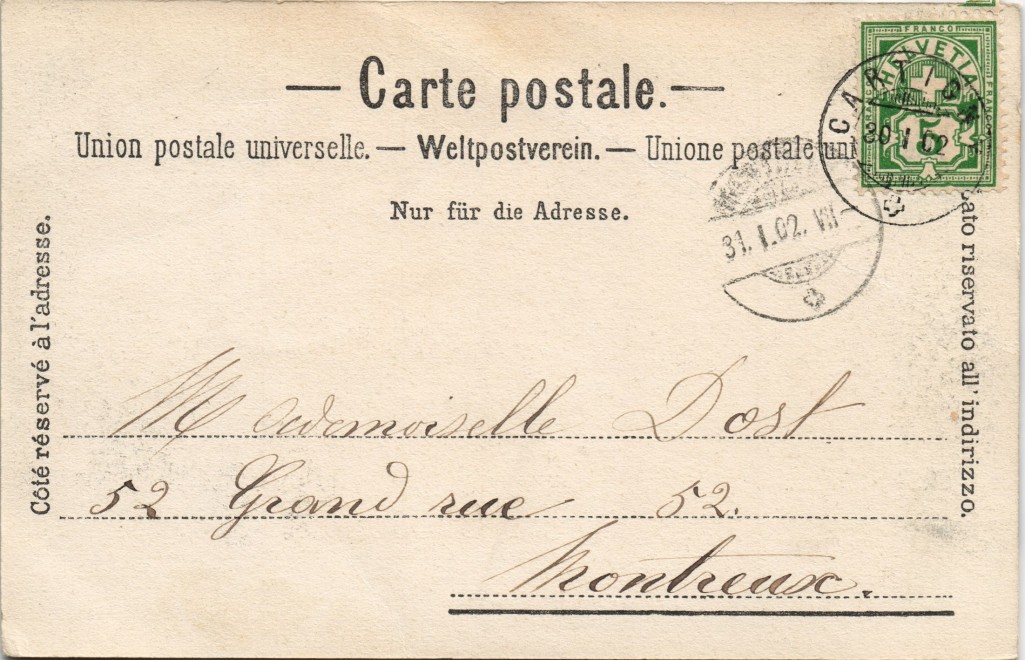 — Carte postale. —
Union postale universelle. — Weltpostverein. — Unione postale uni
Nur für die Adresse.
Côté réservé à l'adresse.
ato riservato all' indirizzo.
FRANCO
HELVETIA
5
30 I 02
31. I. 02. VII –
Mademoiselle Dost
52 Grand rue 52.
Montreux.